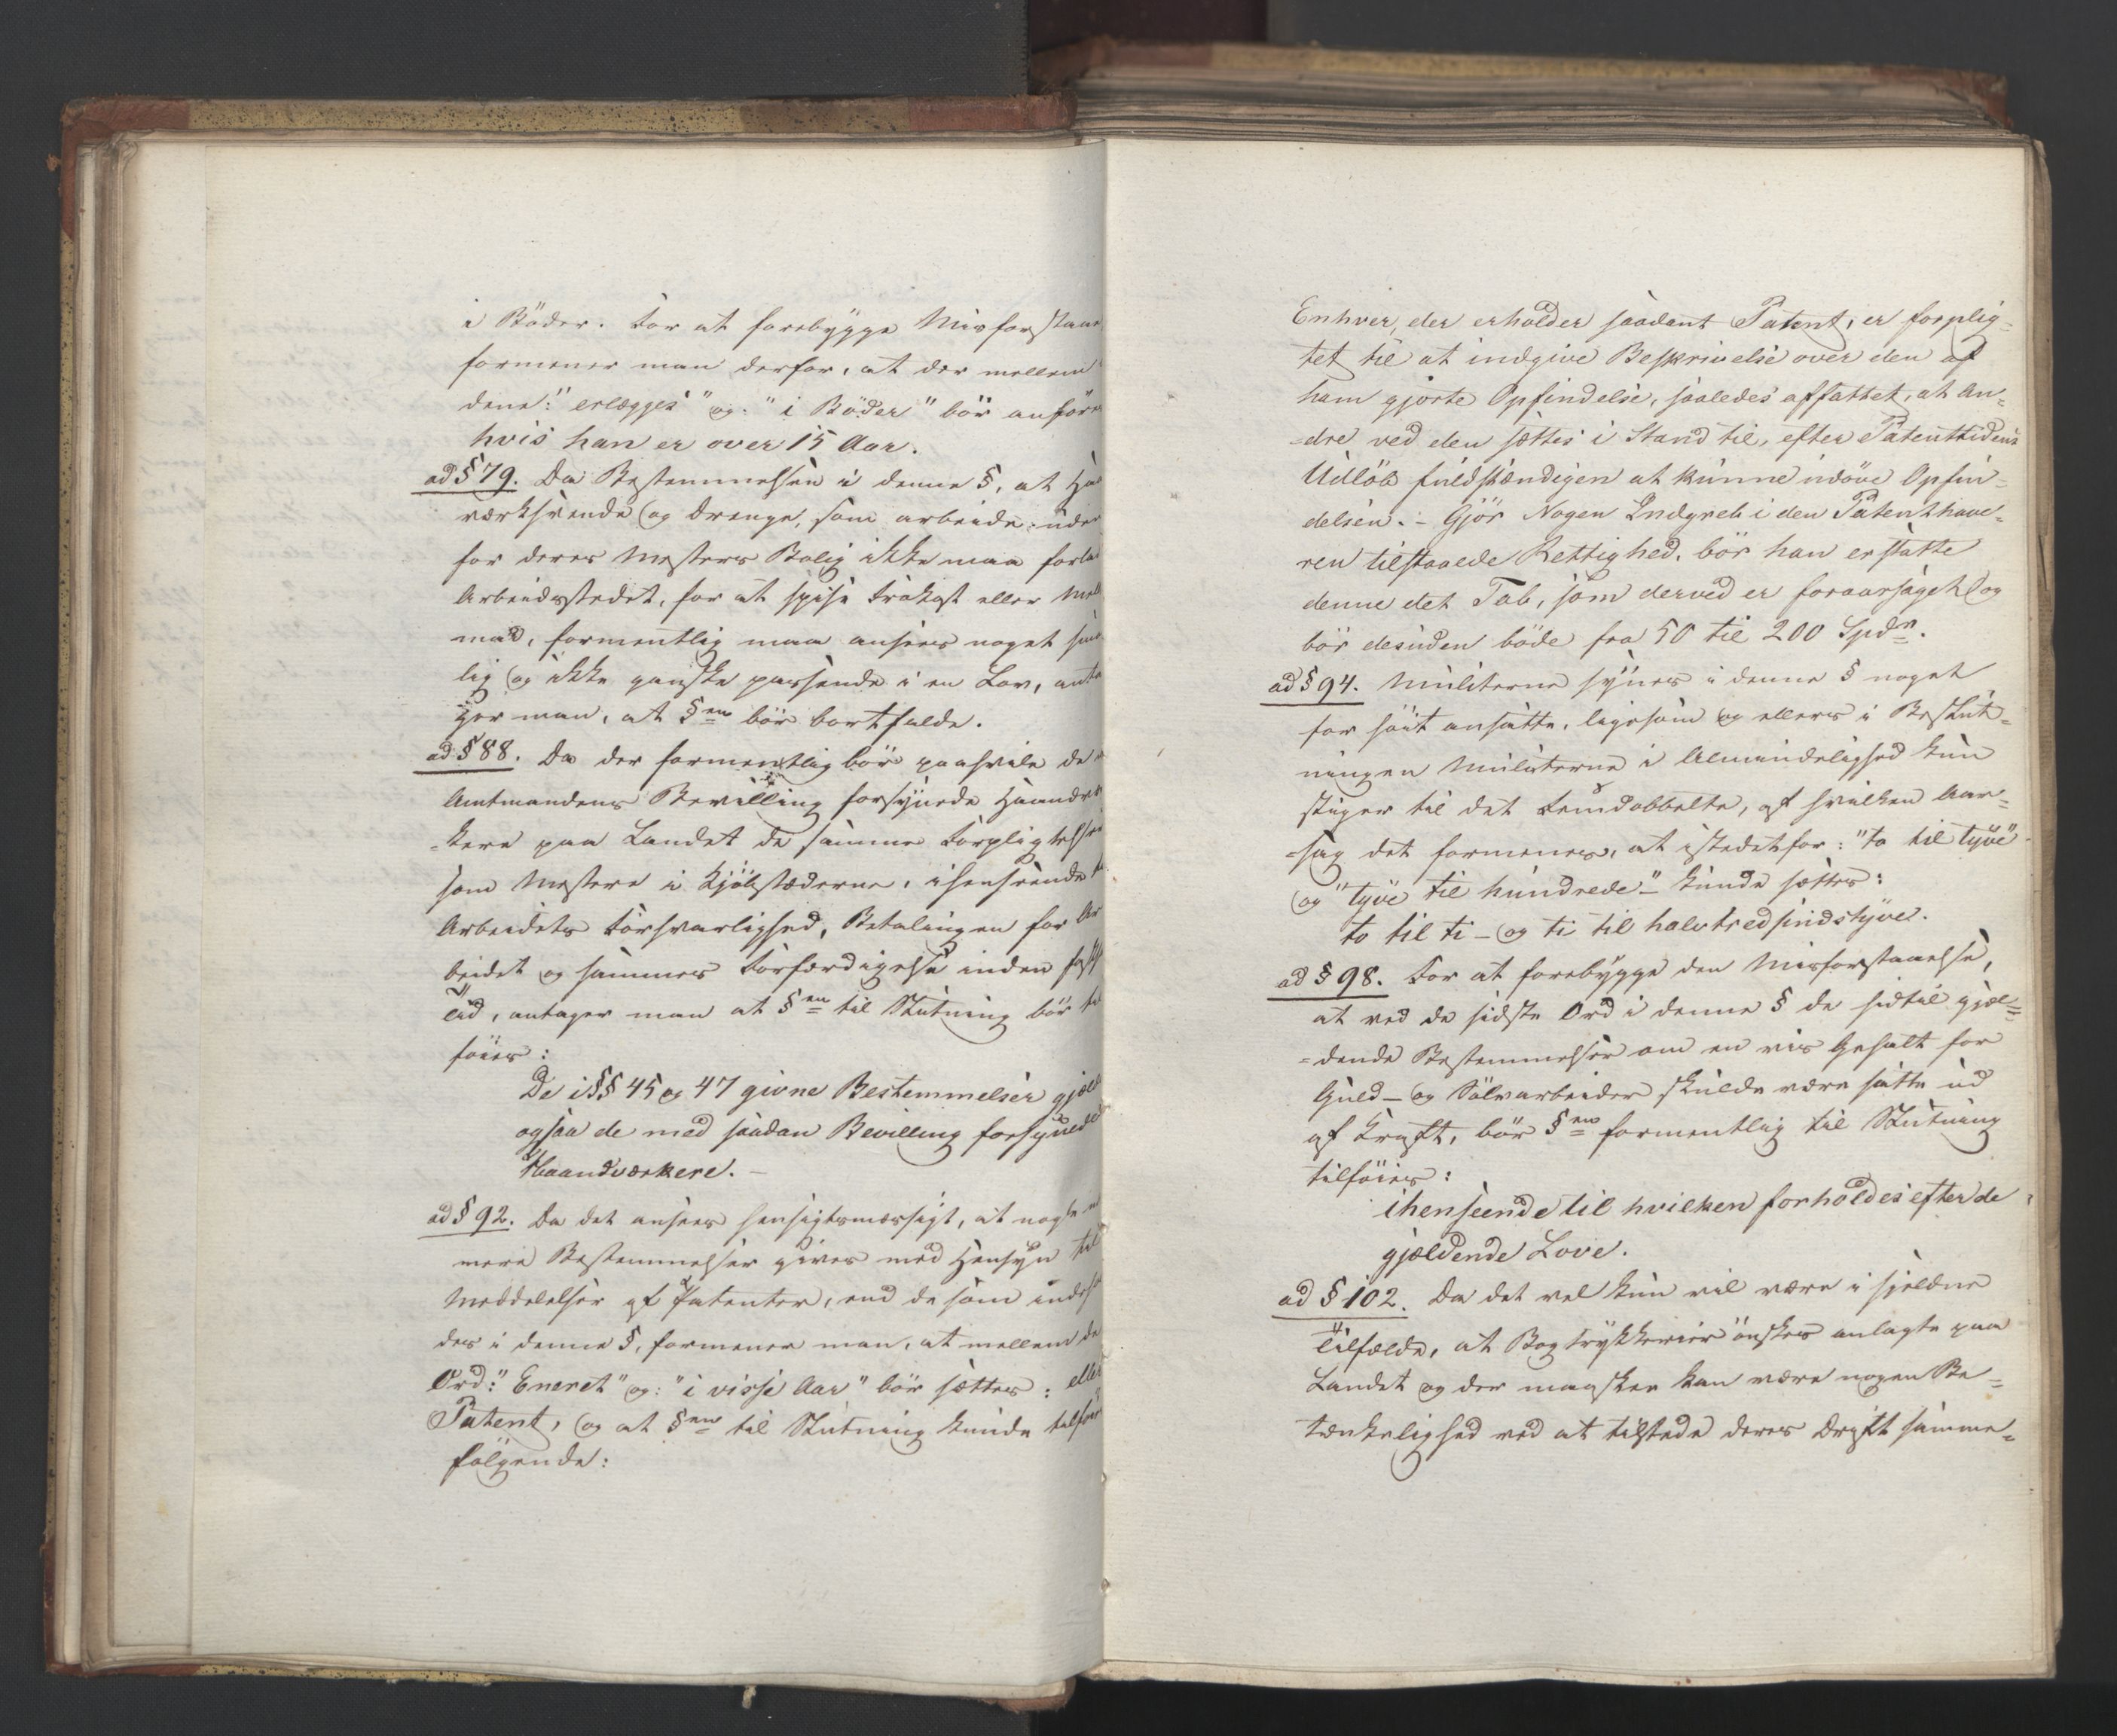 i Böder. For at forebygge Misforstaae
formener man derfor, at der mellem
dene: "erlægges" og: "i Böder" bör anföre
hvis han er over 15 Aar.
ad § 79. Da Bestemmelsen i denne §, at Haa
værksvende og Drenge, som arbeide uden
for deres Mesters Bolig ikke maa forla
Arbeidsstedet, for at spise Frokost eller Mell
mad, formentlig maa ansees noget smaa
lig og ikke ganske passende i en Lov, anta
ger man, at §en bör bortfalde.
ad § 88. Da der formentlig bör paahvile de
Amtmandens Bevilling forsynede Haandvæ
-kere paa Landet de samme Forpligtelser
som Mestere i Kjöbstæderne, ihenseende t
Arbeidets Forsvarlighed, Betalingen for Ar
beidet og sammes Forfærdigelse inden
Tid, antager man at §en til Slutning bör til
föies:
De i §§ 45 og 47 givne Bestemmelser gjæld
ogsaa de med saadan Bevilling forsynede
Haandværkere. -
ad § 92. Da det ansees hensigtsmæssigt, at nogle
mere Bestemmelser gives med Hensyn til
Meddelelser af Patenter, end de som indeh
des i denne §, formener man, at mellem de
Ord: "Eneret" og: "i visse Aar" bör sættes: eller
Patent, og at §en til Slutning kunde tilföie
fölgende:
Enhver, der erholder saadant Patent, er forplig=
tet til at indgive Beskrivelse over den af
ham gjorte Opfindelse, saaledes affattet, at An=
=dre ved den sættes i Stand til, efter Patenttidens
Udlöb fuldstændigen at kunne udöve Opfin=
delsen. - Gjör Nogen Indgreb i den Patenthave=
ren tilstaaede Rettighed, bör han erstatte
denne det Tab, som derved er foraarsaget og
bör desuden böde fra 50 til 200 Spdr.
ad § 94. Mulcterne synes i denne § noget
for höit ansatte, ligesom og ellers i Beslut=
ningen Mulcterne i Almindelighed kun
stiger til det Femdobbelte, af hvilken Aar=
=sag det formenes, at istedetfor: "to til tyve"
og "tyve til hundrede" - kunde sættes:
to til ti - og ti til halvtredsindstyve.
ad § 98. For at forebygge den Misforstaaelse,
at ved de sidste Ord i denne § de hidtil gjæl=
=dende Bestemmelser om en vis Gehalt for
Guld- og Sölvarbeider skulde være satte ud
af Kraft, bör §en formentlig til Slutning
tilföies:
ihenseende til hvilken forholdes efter de
gjældende Love.
ad § 102. Da det vel kun vil være i sjeldne
Tilfælde, at Bogtrykkerier önskes anlagte paa
Landet og der maaskee kan være nogen Be=
tænkelighed ved at tilstede deres Drift samme=